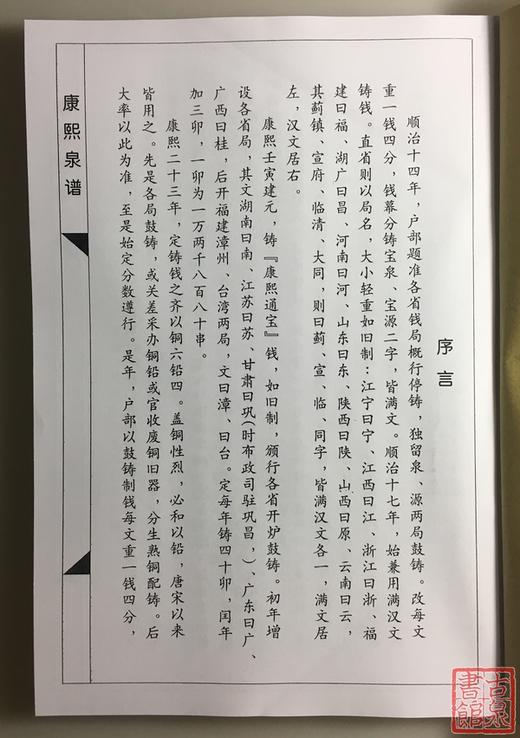 序言
顺治十四年，户部题准各省钱局概行停铸，独留泉、源两局鼓铸。改每文
重一钱四分，钱幕分铸宝泉、宝源二字，皆满文。顺治十七年，始兼用满汉文
铸钱。直省则以局名，大小轻重如旧制：江宁曰宁、江西曰江、浙江曰浙、福
建曰福、湖广曰昌、河南曰河、山东曰东、陕西曰陕、山西曰原、云南曰云，
其蓟镇、宣府、临清、大同，则曰蓟、宣、临、同字，皆满汉文各一，满文居
左，汉文居右。
康熙壬寅建元，铸『康熙通宝』钱，如旧制，颁行各省开炉鼓铸。初年增
设各省局，其文湖南曰南、江苏曰苏、甘肃曰巩（时布政司驻巩昌，）、广东曰广、
广西曰桂，后开福建漳州、台湾两局，文曰漳、曰台。定每年铸四十卯，闰年
加三卯，一卯为一万两千八百八十串。
康熙二十三年，定铸钱之齐以铜六铅四。盖铜性烈，必和以铅，唐宋以来
皆用之。先是各局鼓铸，或关差采办铜铅或官收废铜旧器，分生熟铜配铸。后
大率以此为准，至是始定分数遵行。是年，户部以鼓铸制钱每文重一钱四分，
康熙泉谱
古泉
書館